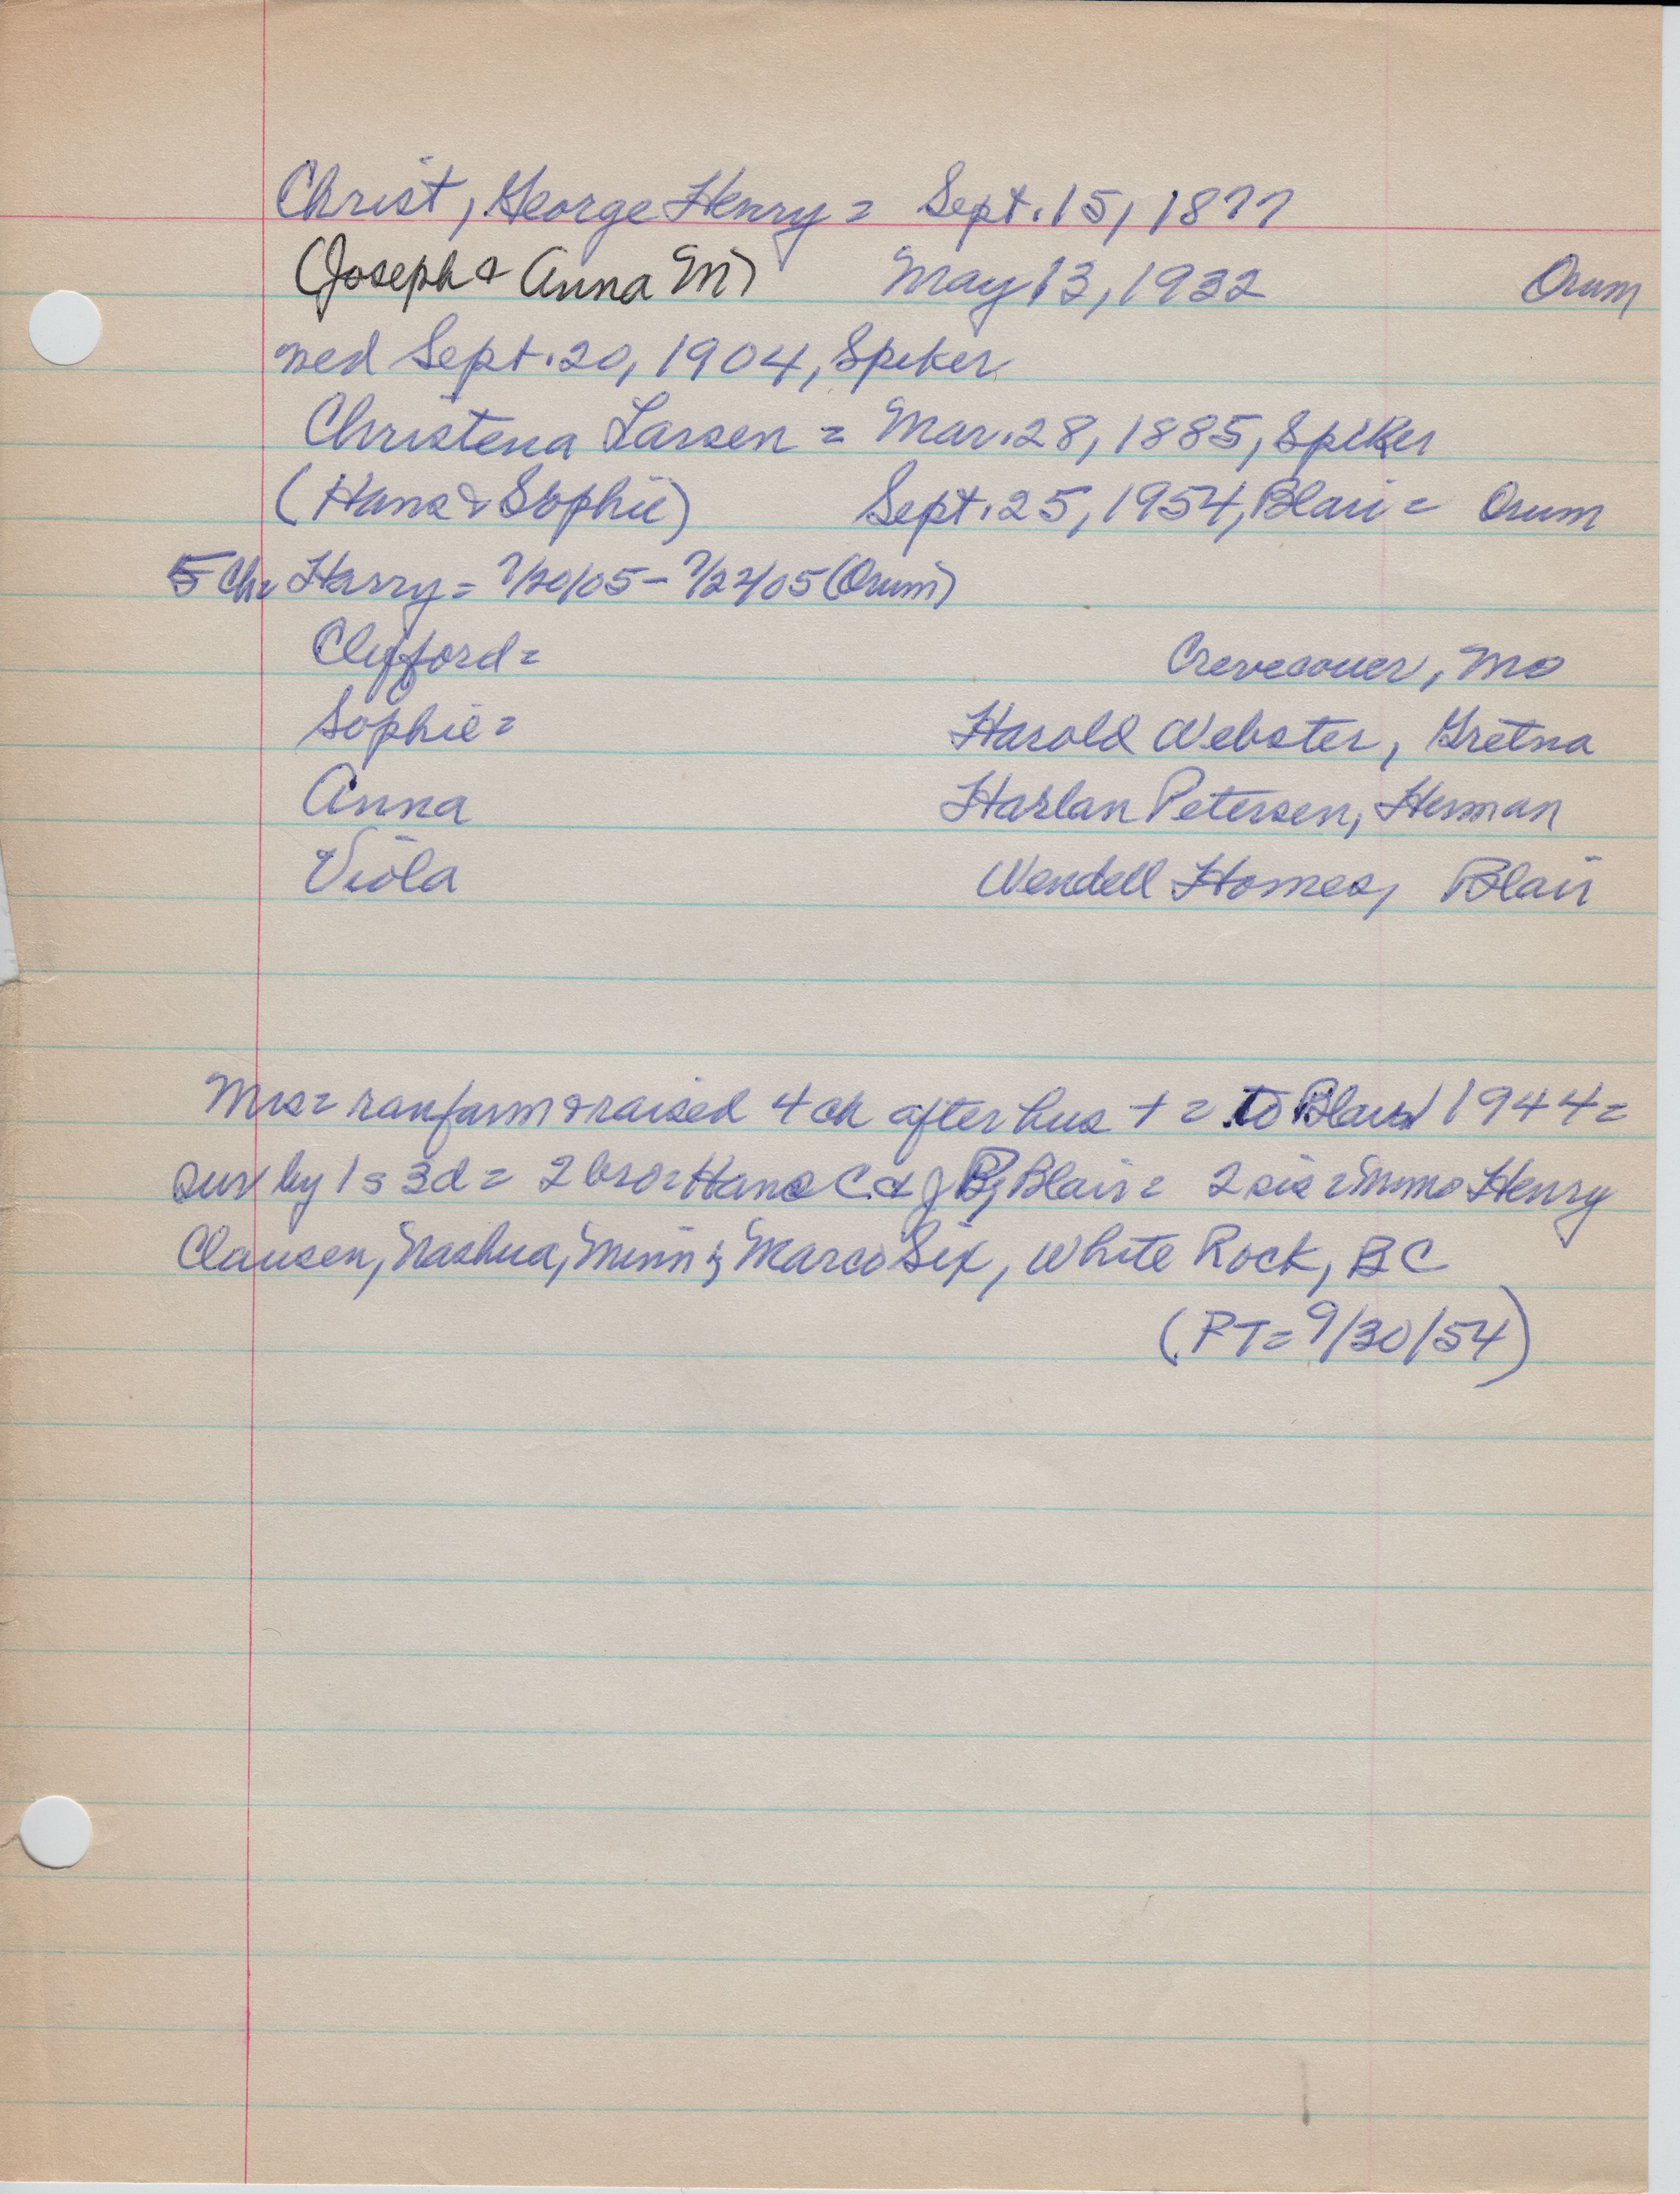 Christ, George Henry = Sept. 15, 1877
(Joseph & Anna M) May 13, 1932 Orum
med Sept. 20, 1904, Spiker
Christena Larsen = Mar. 28, 1885, Spiker
(Hans & Sophie) Sept. 25, 1954, Blair = Orum
5 Ch = Harry = 7/20/05 - 7/22/05 (Orum)
Clifford = Crevecouer, Mo
Sophie = Harold Webster, Gretna
Anna Harlan Petersen, Herman
Viola Wendell Homes, Blair
Mrs = ran farm & raised 4 ch after hus + = to Blair 1944 =
sur by 1 s 3 d = 2 bro = Hans C. & J B, Blair = 2 sis = Mmes Henry
Clausen, Nashua, Minn & Marco Six, White Rock, BC
(PT = 9/30/54)